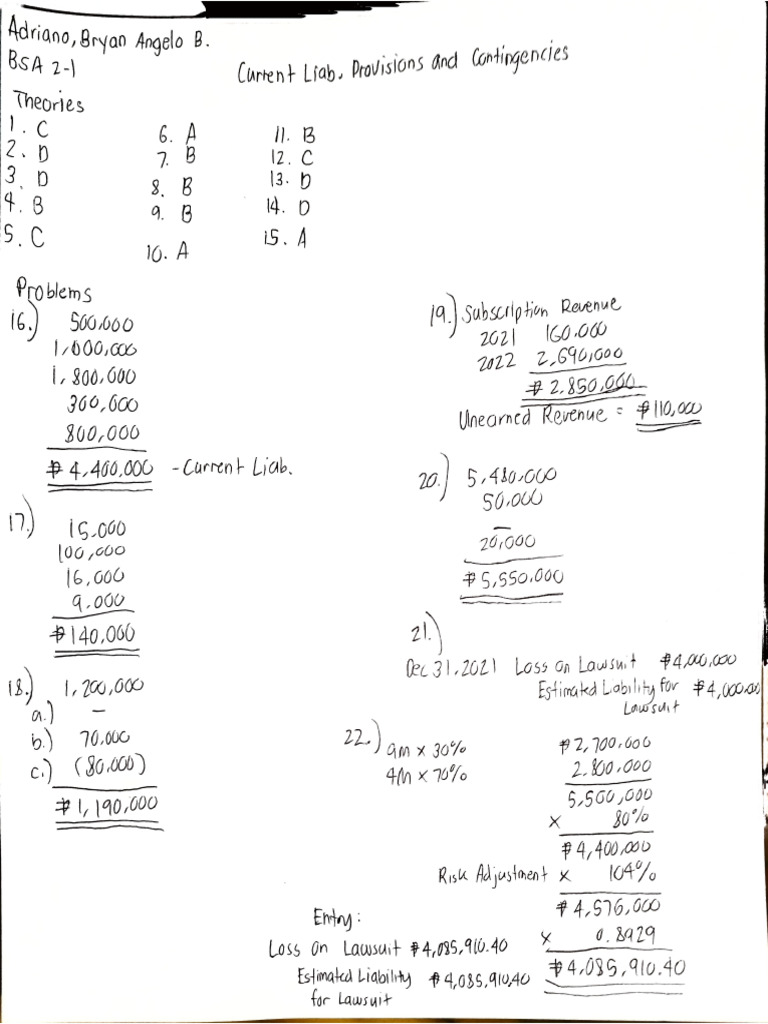 Adriano, Bryan Angelo B.
BSA 2-1
Current Liab, Provisions and Contingencies
Theories
1. C
2. D
3. D
4. B
5. C
6. A
7. B
8. B
9. B
10. A
11. B
12. C
13. D
14. D
15. A
Problems
16.) 500,000
1,000,000
1,800,000
300,000
800,000
₱ 4,400,000 - Current Liab.
17.) 15,000
100,000
16,000
9,000
₱ 140,000
18.) 1,200,000
a.) -
b.) 70,000
c.) (80,000)
₱ 1,190,000
19.) Subscription Revenue
2021 160,000
2022 2,690,000
₱ 2,850,000
Unearned Revenue = ₱ 110,000
20.) 5,480,000
50,000
-
20,000
₱ 5,550,000
21.)
Dec 31, 2021 Loss on Lawsuit ₱4,000,000
Estimated Liability for ₱4,000,000
Lawsuit
22.) 9M x 30% ₱ 2,700,000
4M x 70% 2,800,000
5,500,000
x 80%
₱ 4,400,000
Risk Adjustment x 104%
₱ 4,576,000
x 0.8929
₱ 4,085,910.40
Entry:
Loss on Lawsuit ₱4,085,910.40
Estimated Liability ₱4,085,910.40
for Lawsuit